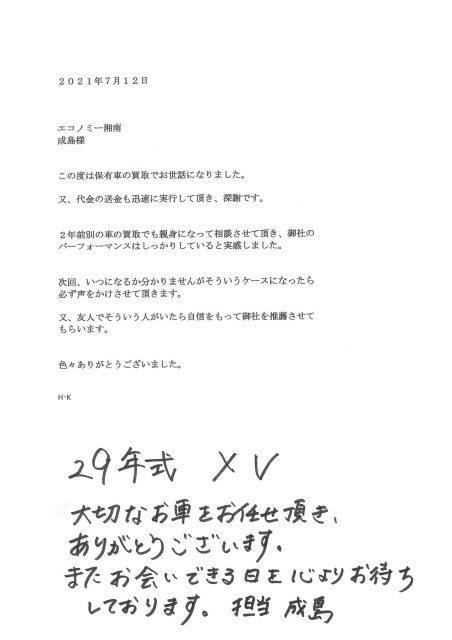 ２０２１年７月１２日
エコノミー湘南
成島様
この度は保有車の買取でお世話になりました。
又、代金の送金も迅速に実行して頂き、深謝です。
２年前別の車の買取でも親身になって相談させて頂き、御社の
パーフォーマンスはしっかりしていると実感しました。
次回、いつになるか分かりませんがそういうケースになったら
必ず声をかけさせて頂きます。
又、友人でそういう人がいたら自信をもって御社を推薦させて
もらいます。
色々ありがとうございました。
H-K
29年式 XV
大切なお車をお任せ頂き、
ありがとうございます。
またお会いできる日を心よりお待ち
しております。担当 成島